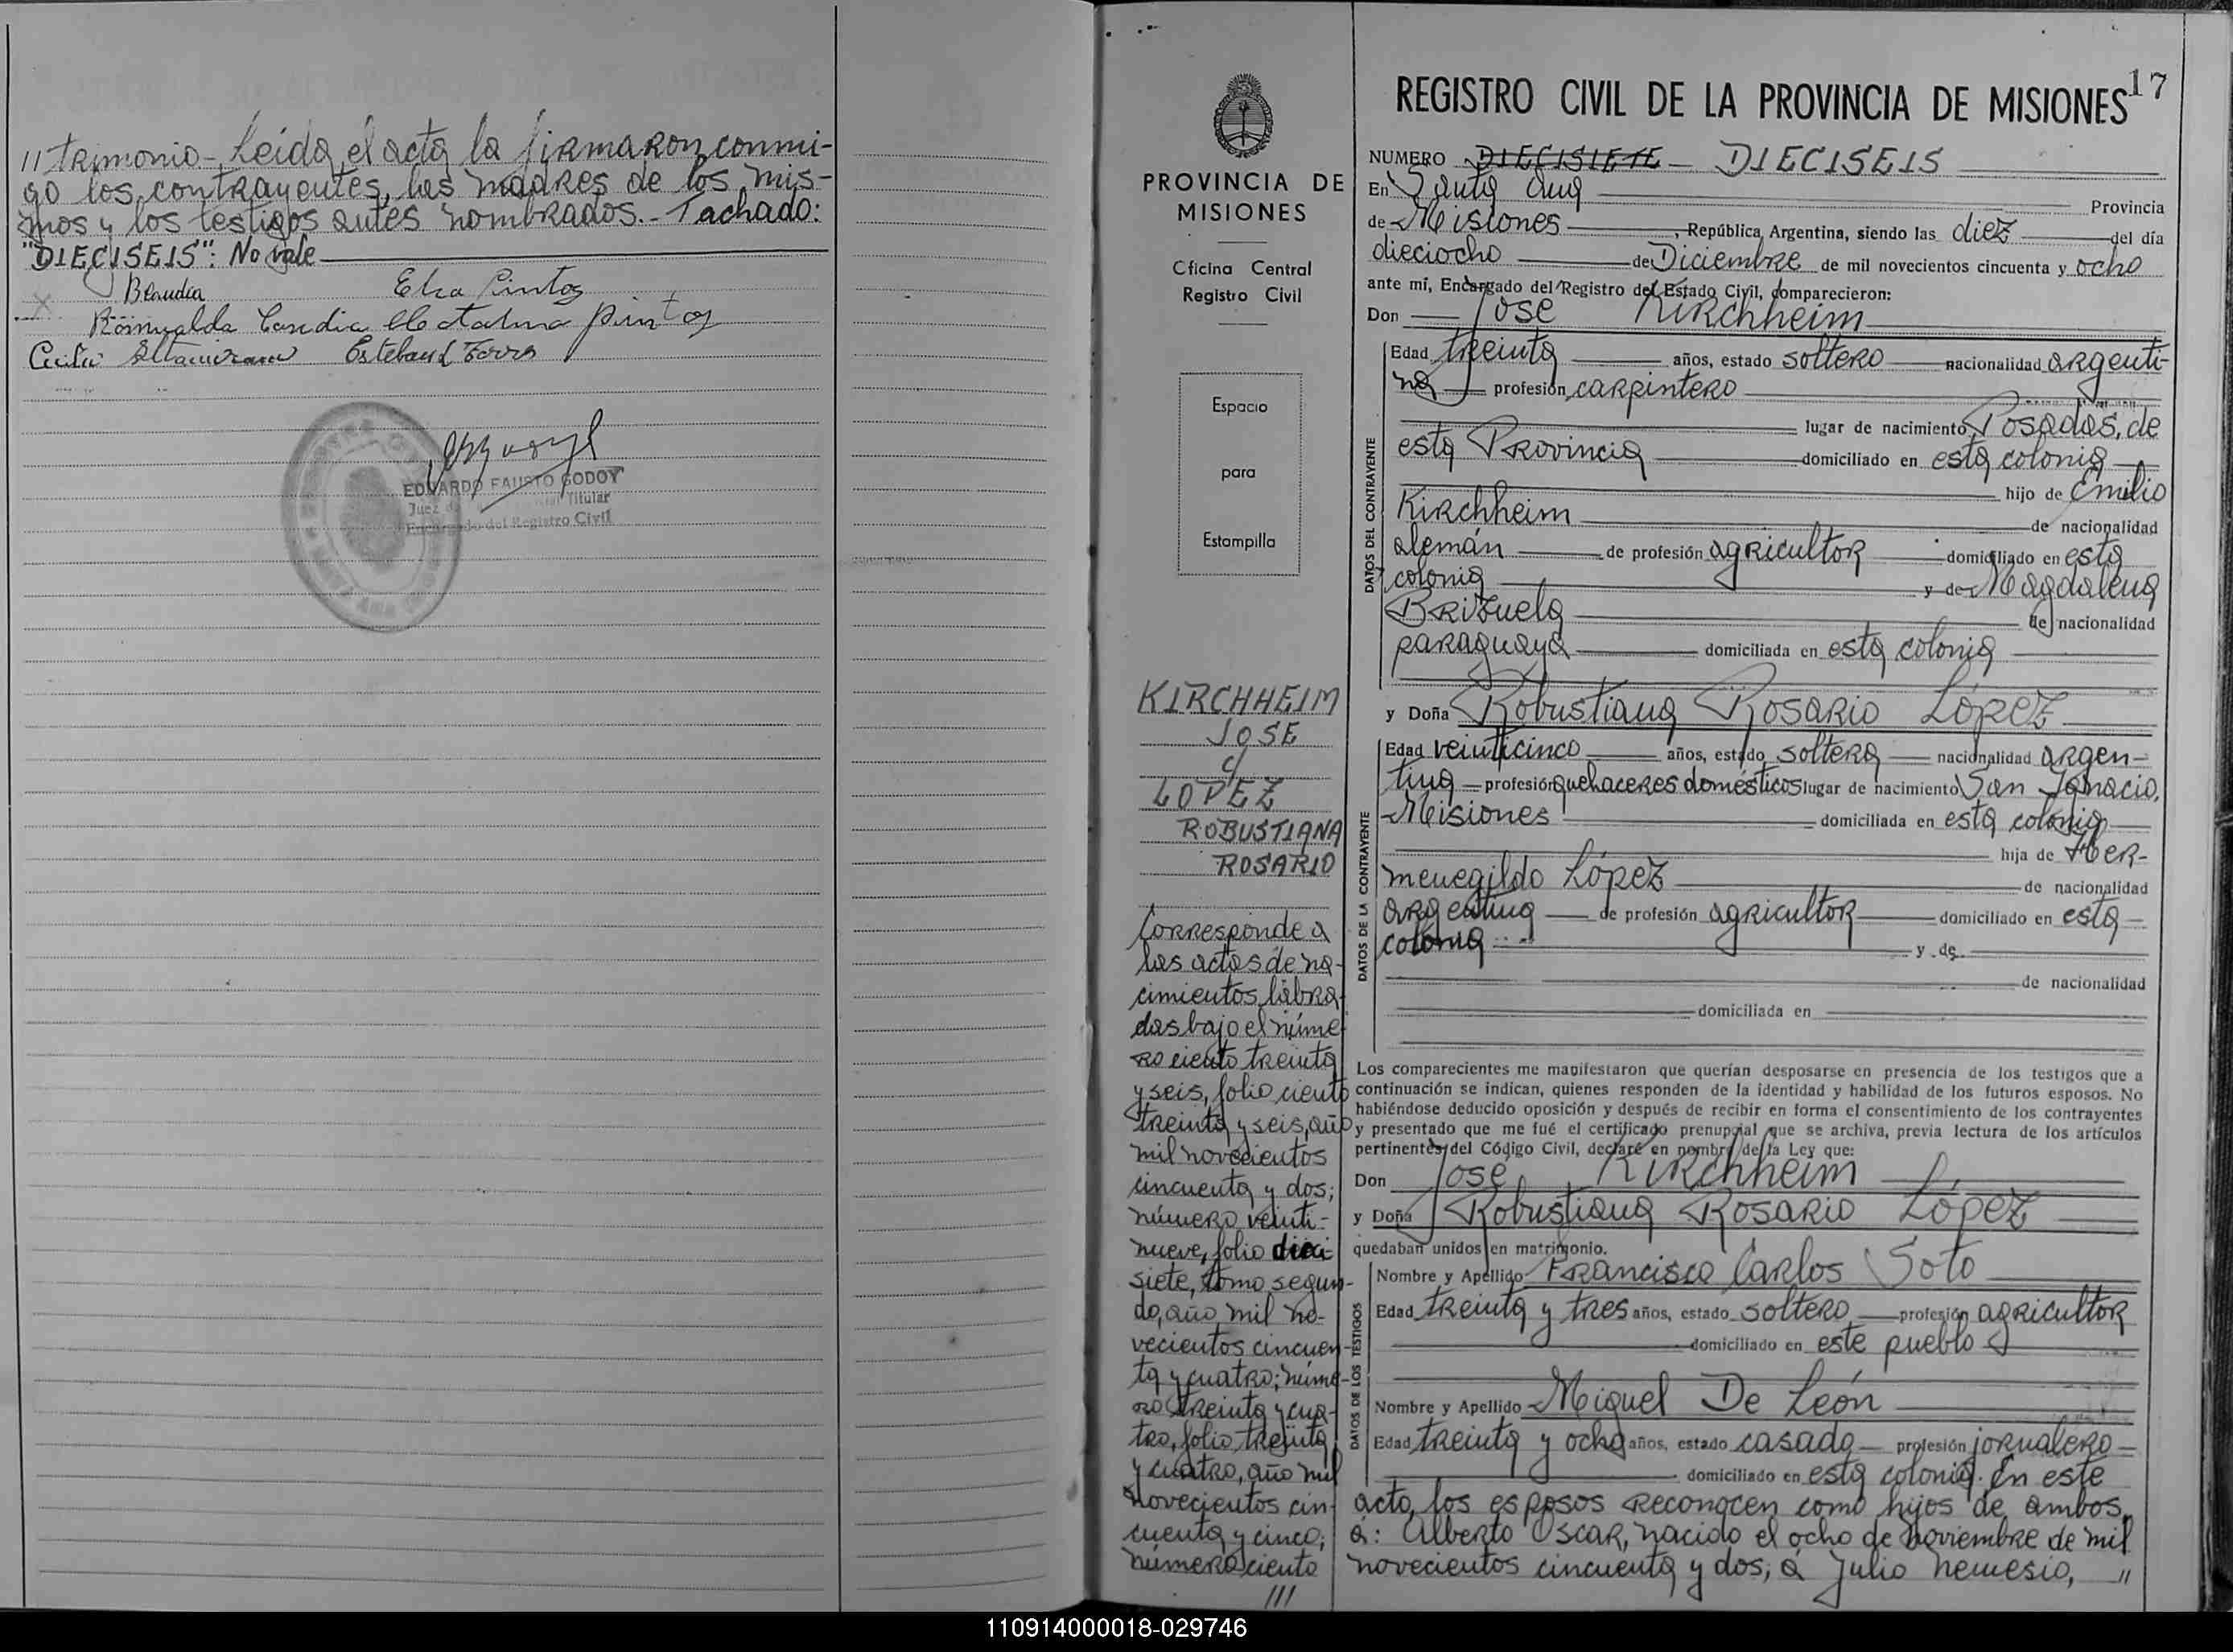 // trimonio.- Leída el acta la firmaron conmi-
go los contrayentes, las madres de los mis-
mos y los testigos antes nombrados.- Tachado:
"DIECISEIS": No vale
Elsa Pintos
Romualda Candia Clotalma Pintos
Altamirano Esteban
EDUARDO FAUSTO GODOY
Juez de Titular
Encargado del Registro Civil
PROVINCIA DE
MISIONES
Oficina Central
Registro Civil
Espacio
para
Estampilla
KIRCHHEIM
JOSE
c/
LOPEZ
ROBUSTIANA
ROSARIO
Corresponde a
las actas de na-
cimientos labra-
das bajo el núme-
ro ciento treinta
y seis, folio ciento
treinta y seis, año
mil novecientos
cincuenta y dos;
número veinti-
nueve, folio dieci-
siete, tomo segun-
do, año mil no-
vecientos cincuen-
ta y cuatro; núme-
ro treinta y cua-
tro, folio treinta
y cuatro, año mil
novecientos cin-
cuenta y cinco;
número ciento
///
17
REGISTRO CIVIL DE LA PROVINCIA DE MISIONES
NUMERO DIECISIETE DIECISEIS
En Santa Ana Provincia
de Misiones, República Argentina, siendo las diez del día
dieciocho de Diciembre de mil novecientos cincuenta y ocho
ante mí, Encargado del Registro del Estado Civil, comparecieron:
Don José Kirchheim
DATOS DEL CONTRAYENTE
Edad treinta años, estado soltero nacionalidad argenti-
na profesión carpintero
lugar de nacimiento Posadas, de
esta Provincia domiciliado en esta colonia
hijo de Emilio
Kirchheim de nacionalidad
alemán de profesión agricultor domiciliado en esta
colonia y de Magdalena
Brizuela de nacionalidad
paraguaya domiciliada en esta colonia
y Doña Robustiana Rosario López
DATOS DE LA CONTRAYENTE
Edad veinticinco años, estado soltera nacionalidad argen-
tina profesión quehaceres domésticos lugar de nacimiento San Ignacio,
Misiones domiciliada en esta colonia
hija de Her-
menegildo López de nacionalidad
argentina de profesión agricultor domiciliado en esta
colonia y de
de nacionalidad
domiciliada en
Los comparecientes me manifestaron que querían desposarse en presencia de los testigos que a
continuación se indican, quienes responden de la identidad y habilidad de los futuros esposos. No
habiéndose deducido oposición y después de recibir en forma el consentimiento de los contrayentes
y presentado que me fué el certificado prenupcial que se archiva, previa lectura de los artículos
pertinentes del Código Civil, declaré en nombre de la Ley que:
Don José Kirchheim
y Doña Robustiana Rosario López
quedaban unidos en matrimonio.
DATOS DE LOS TESTIGOS
Nombre y Apellido Francisco Carlos Soto
Edad treinta y tres años, estado soltero profesión agricultor
domiciliado en este pueblo
Nombre y Apellido Miguel De León
Edad treinta y ocho años, estado casado profesión jornalero
domiciliado en esta colonia. En este
acto, los esposos reconocen como hijos de ambos,
a: Alberto Oscar, nacido el ocho de noviembre de mil
novecientos cincuenta y dos; a Julio Nemesio, //
110914000018-029746